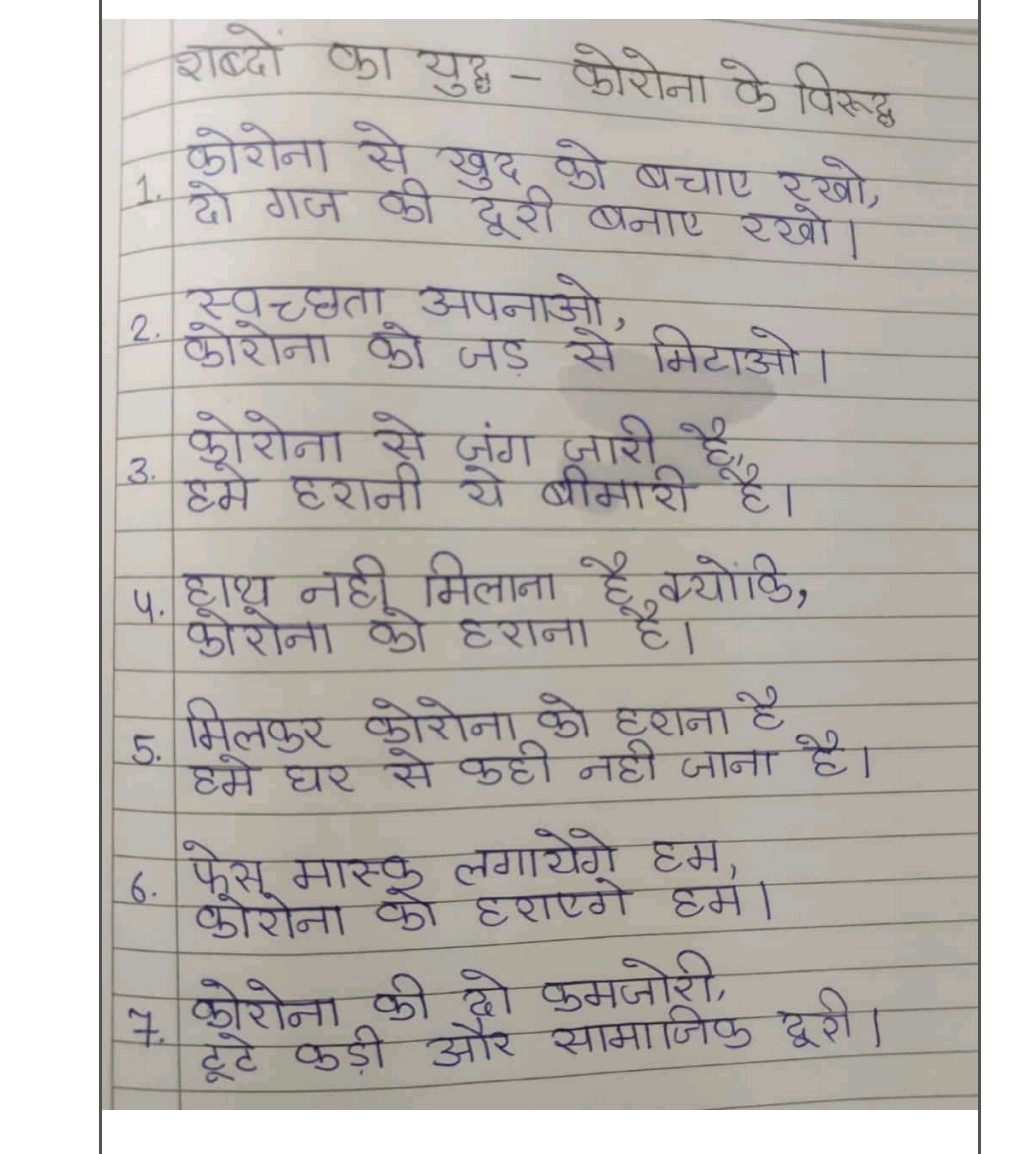 शब्दों का युद्ध – कोरोना के विरूद्ध
1. कोरोना से खुद को बचाए रखो,
दो गज की दूरी बनाए रखो।
2. स्वच्छता अपनाओ,
कोरोना को जड़ से मिटाओ।
3. कोरोना से जंग जारी है,
हमे हरानी ये बीमारी है।
4. हाथ नही मिलाना है क्योंकि,
कोरोना को हराना है।
5. मिलकर कोरोना को हराना है
हमे घर से कही नही जाना है।
6. फेस मास्क लगायेगे हम,
कोरोना को हराएगे हम।
7. कोरोना की दो कमजोरी,
टूटे कड़ी और सामाजिक दूरी।